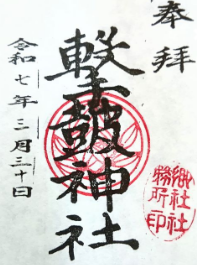 奉拝
撃皷神社
令和七年三月三十日
郷社社
務所印